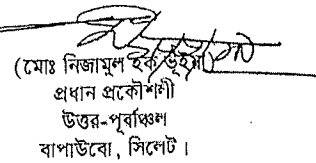 (মোঃ নিজামুল হক ভূইয়া)
প্রধান প্রকৌশলী
উত্তর-পূর্বাঞ্চল
বাপাউবো, সিলেট।